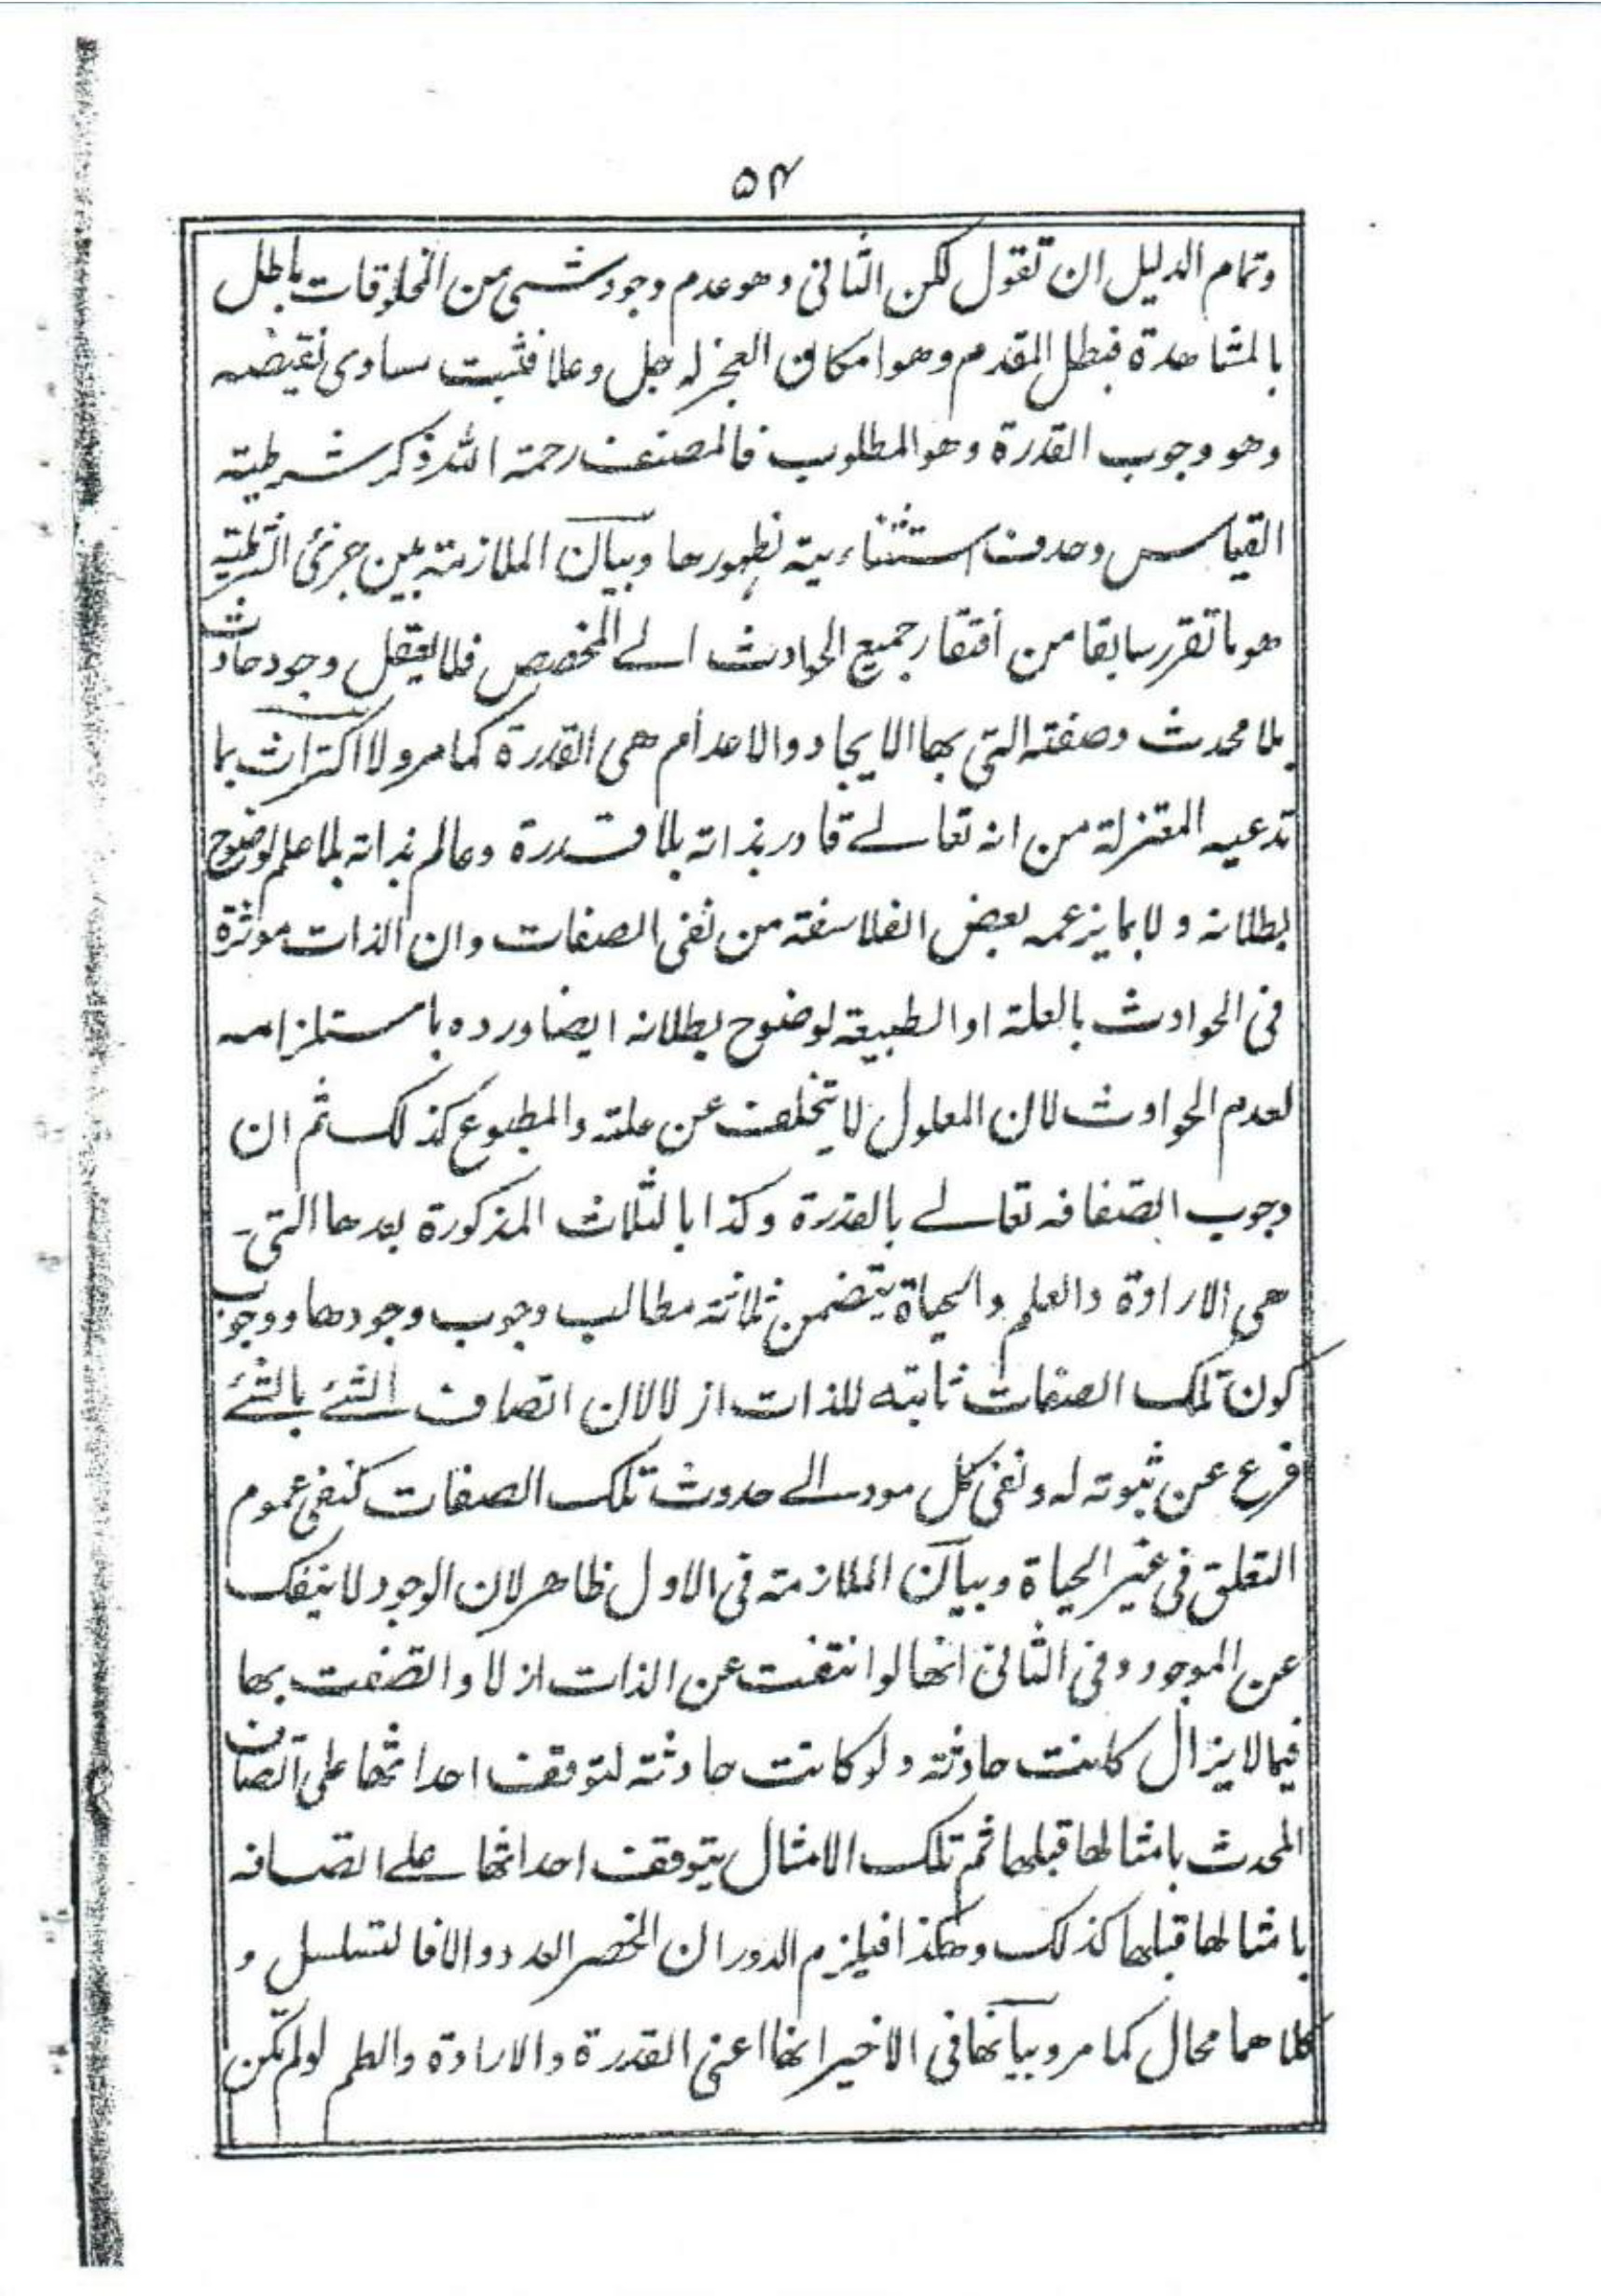 ٥٤
وتمام الدليل ان تقول لكن الثانى وهو عدم وجود شىء من المخلوقات باطل
بالمشاهدة فبطل المقدم وهو امكان العجز له جل وعلا فثبت مساوى نقيضه
وهو وجوب القدرة وهو المطلوب فالمصنف رحمة الله ذكر شرطية
القياس وحدف استثناءيته لظهورها وبيان الملازمة بين جزئ الشرطية
هو ما تقرر سابقا من افتقار جميع الحوادث الے المخصص فلا يعقل وجود حادث
بلا محدث وصفته التى بها الايجاد والاعدام هى القدرة كما مر ولا اكتراث بما
تدعيه المعتزلة من انه تعالے قادر بذاته بلا قدرة وعالم بذاته بلا علم لوضوح
بطلانه ولا بما يزعمه بعض الفلاسفة من نفى الصفات وان الذات موثرة
فى الحوادث بالعلة او الطبيعة لوضوح بطلانه ايضا ورده باستلزامه
لعدم الحوادث لان المعلول لا يتخلف عن علته والمطبوع كذلك ثم ان
وجوب اتصافه تعالے بالقدرة وكذا بالثلاث المذكورة بعدها التى
هى الارادة والعلم والحياة يتضمن ثلاثة مطالب وجوب وجودها ووجوب
كون تلك الصفات ثابته للذات ازلا لان اتصاف الشئے بالشئے
فرع عن ثبوته له ونفى كل مود الے حدوث تلك الصفات كنفى عموم
التعلق فى غير الحياة وبيان الملازمة فى الاول ظاهر لان الوجود لا ينفك
عن الموجود وفى الثانى انها لو انتفت عن الذات ازلا واتصفت بها
فيما لا يزال كانت حادثة ولو كانت حادثة لتوقف احداثها على اتصاف
المحدث بامثالها قبلها ثم تلك الامثال يتوقف احداثها علے اتصافه
بامثالها قبلها كذلك وهكذا فيلزم الدور ان انحصر العدد والا فالتسلسل و
كلاهما محال كما مر وبيانها فى الاخير انها اعنى القدرة والارادة والعلم لو لم تكن